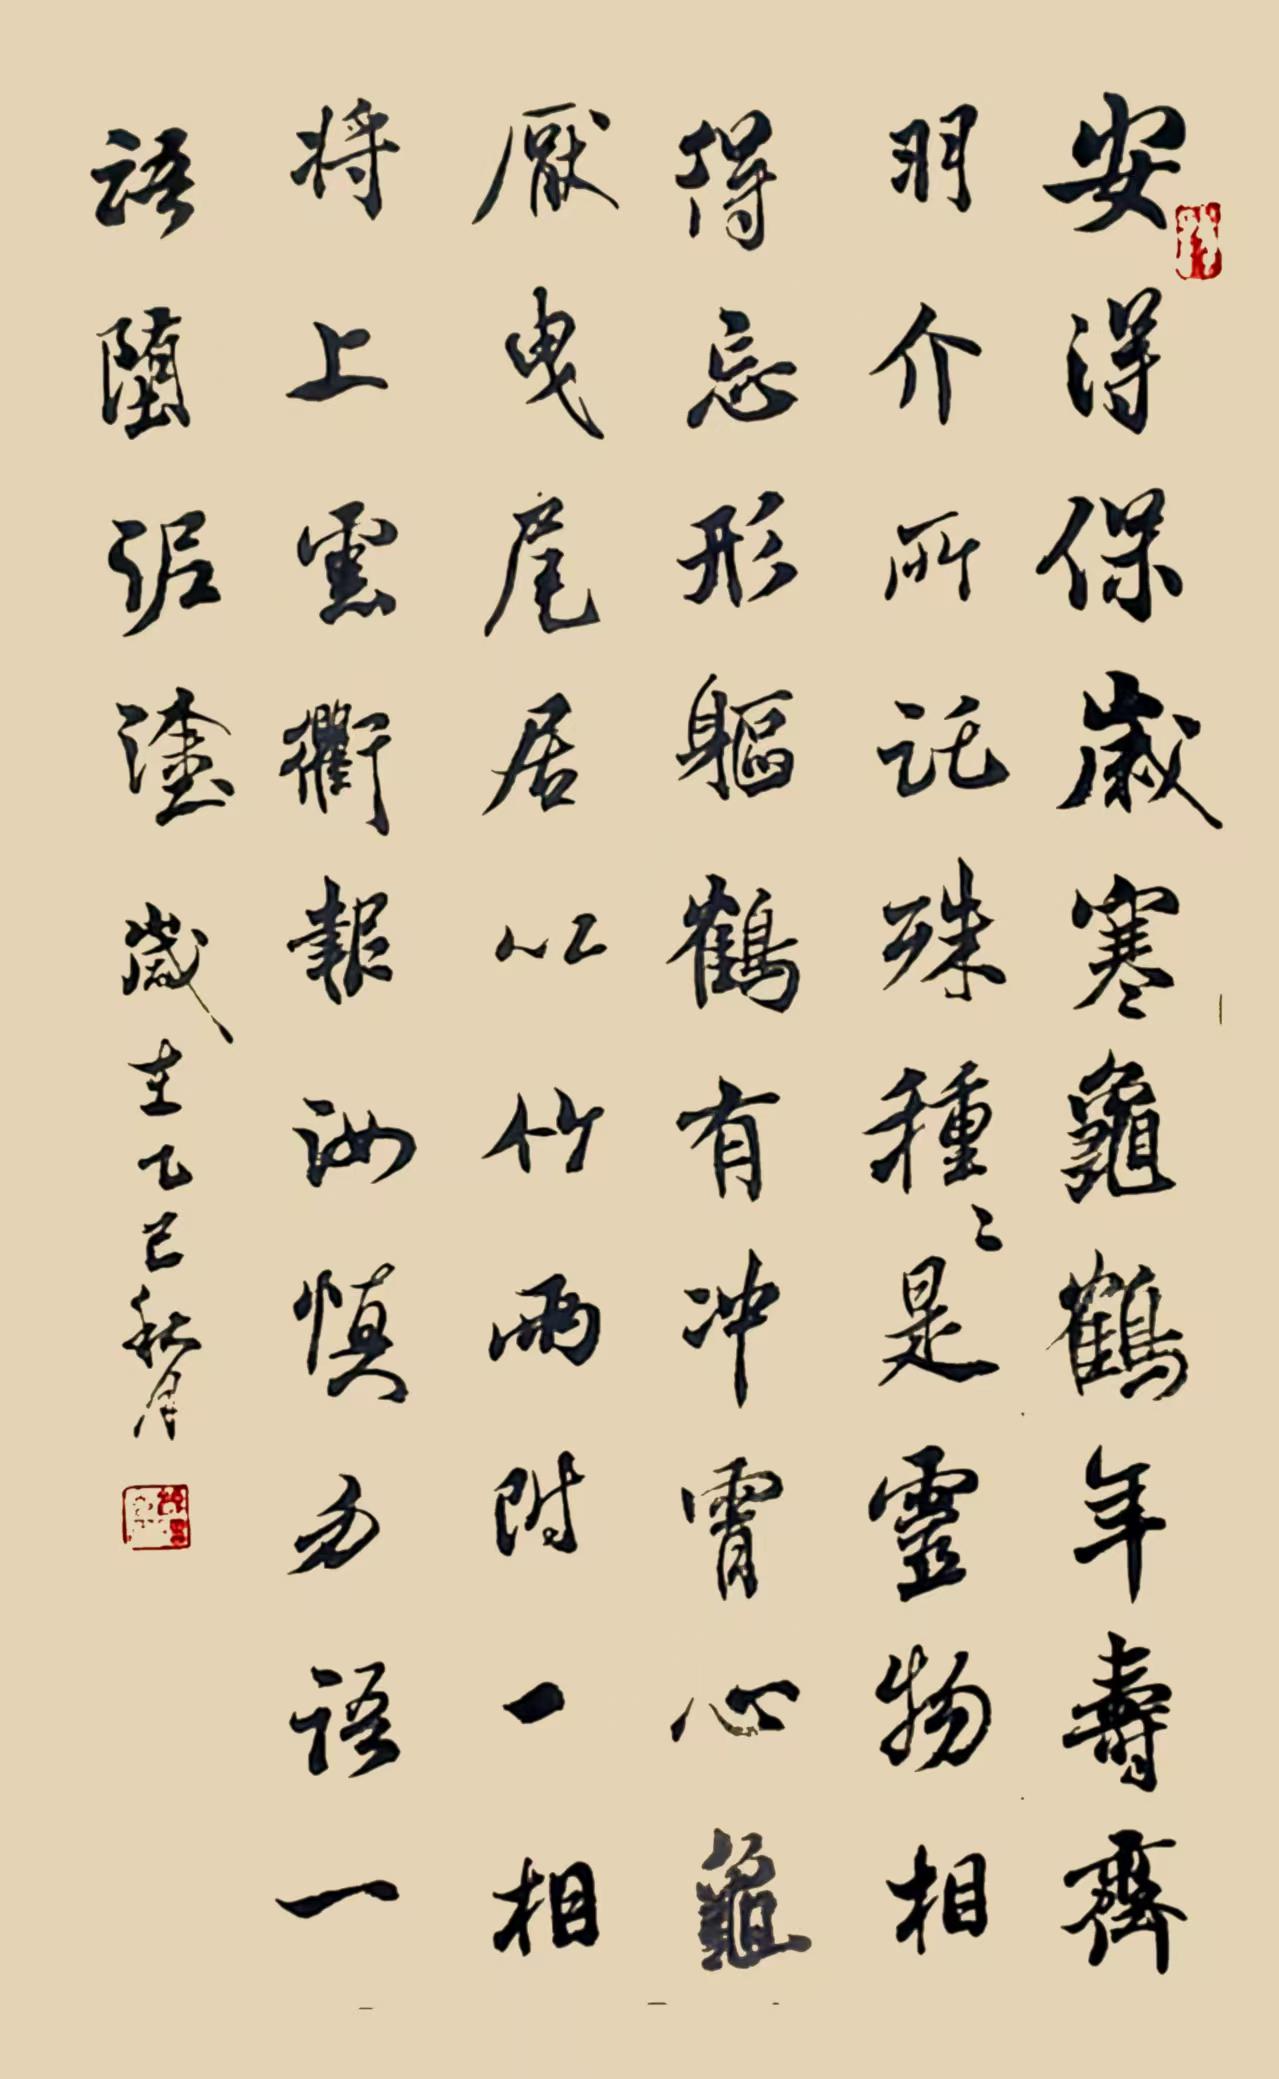 安得保歲寒龜鶴年壽齊
羽介所託殊種〻是靈物相
得忘形軀鶴有冲霄心龜
厭曳尾居以竹兩附一相
将上雲衢報汝慎勿語一
語墮泥塗 歲在乙巳秋月